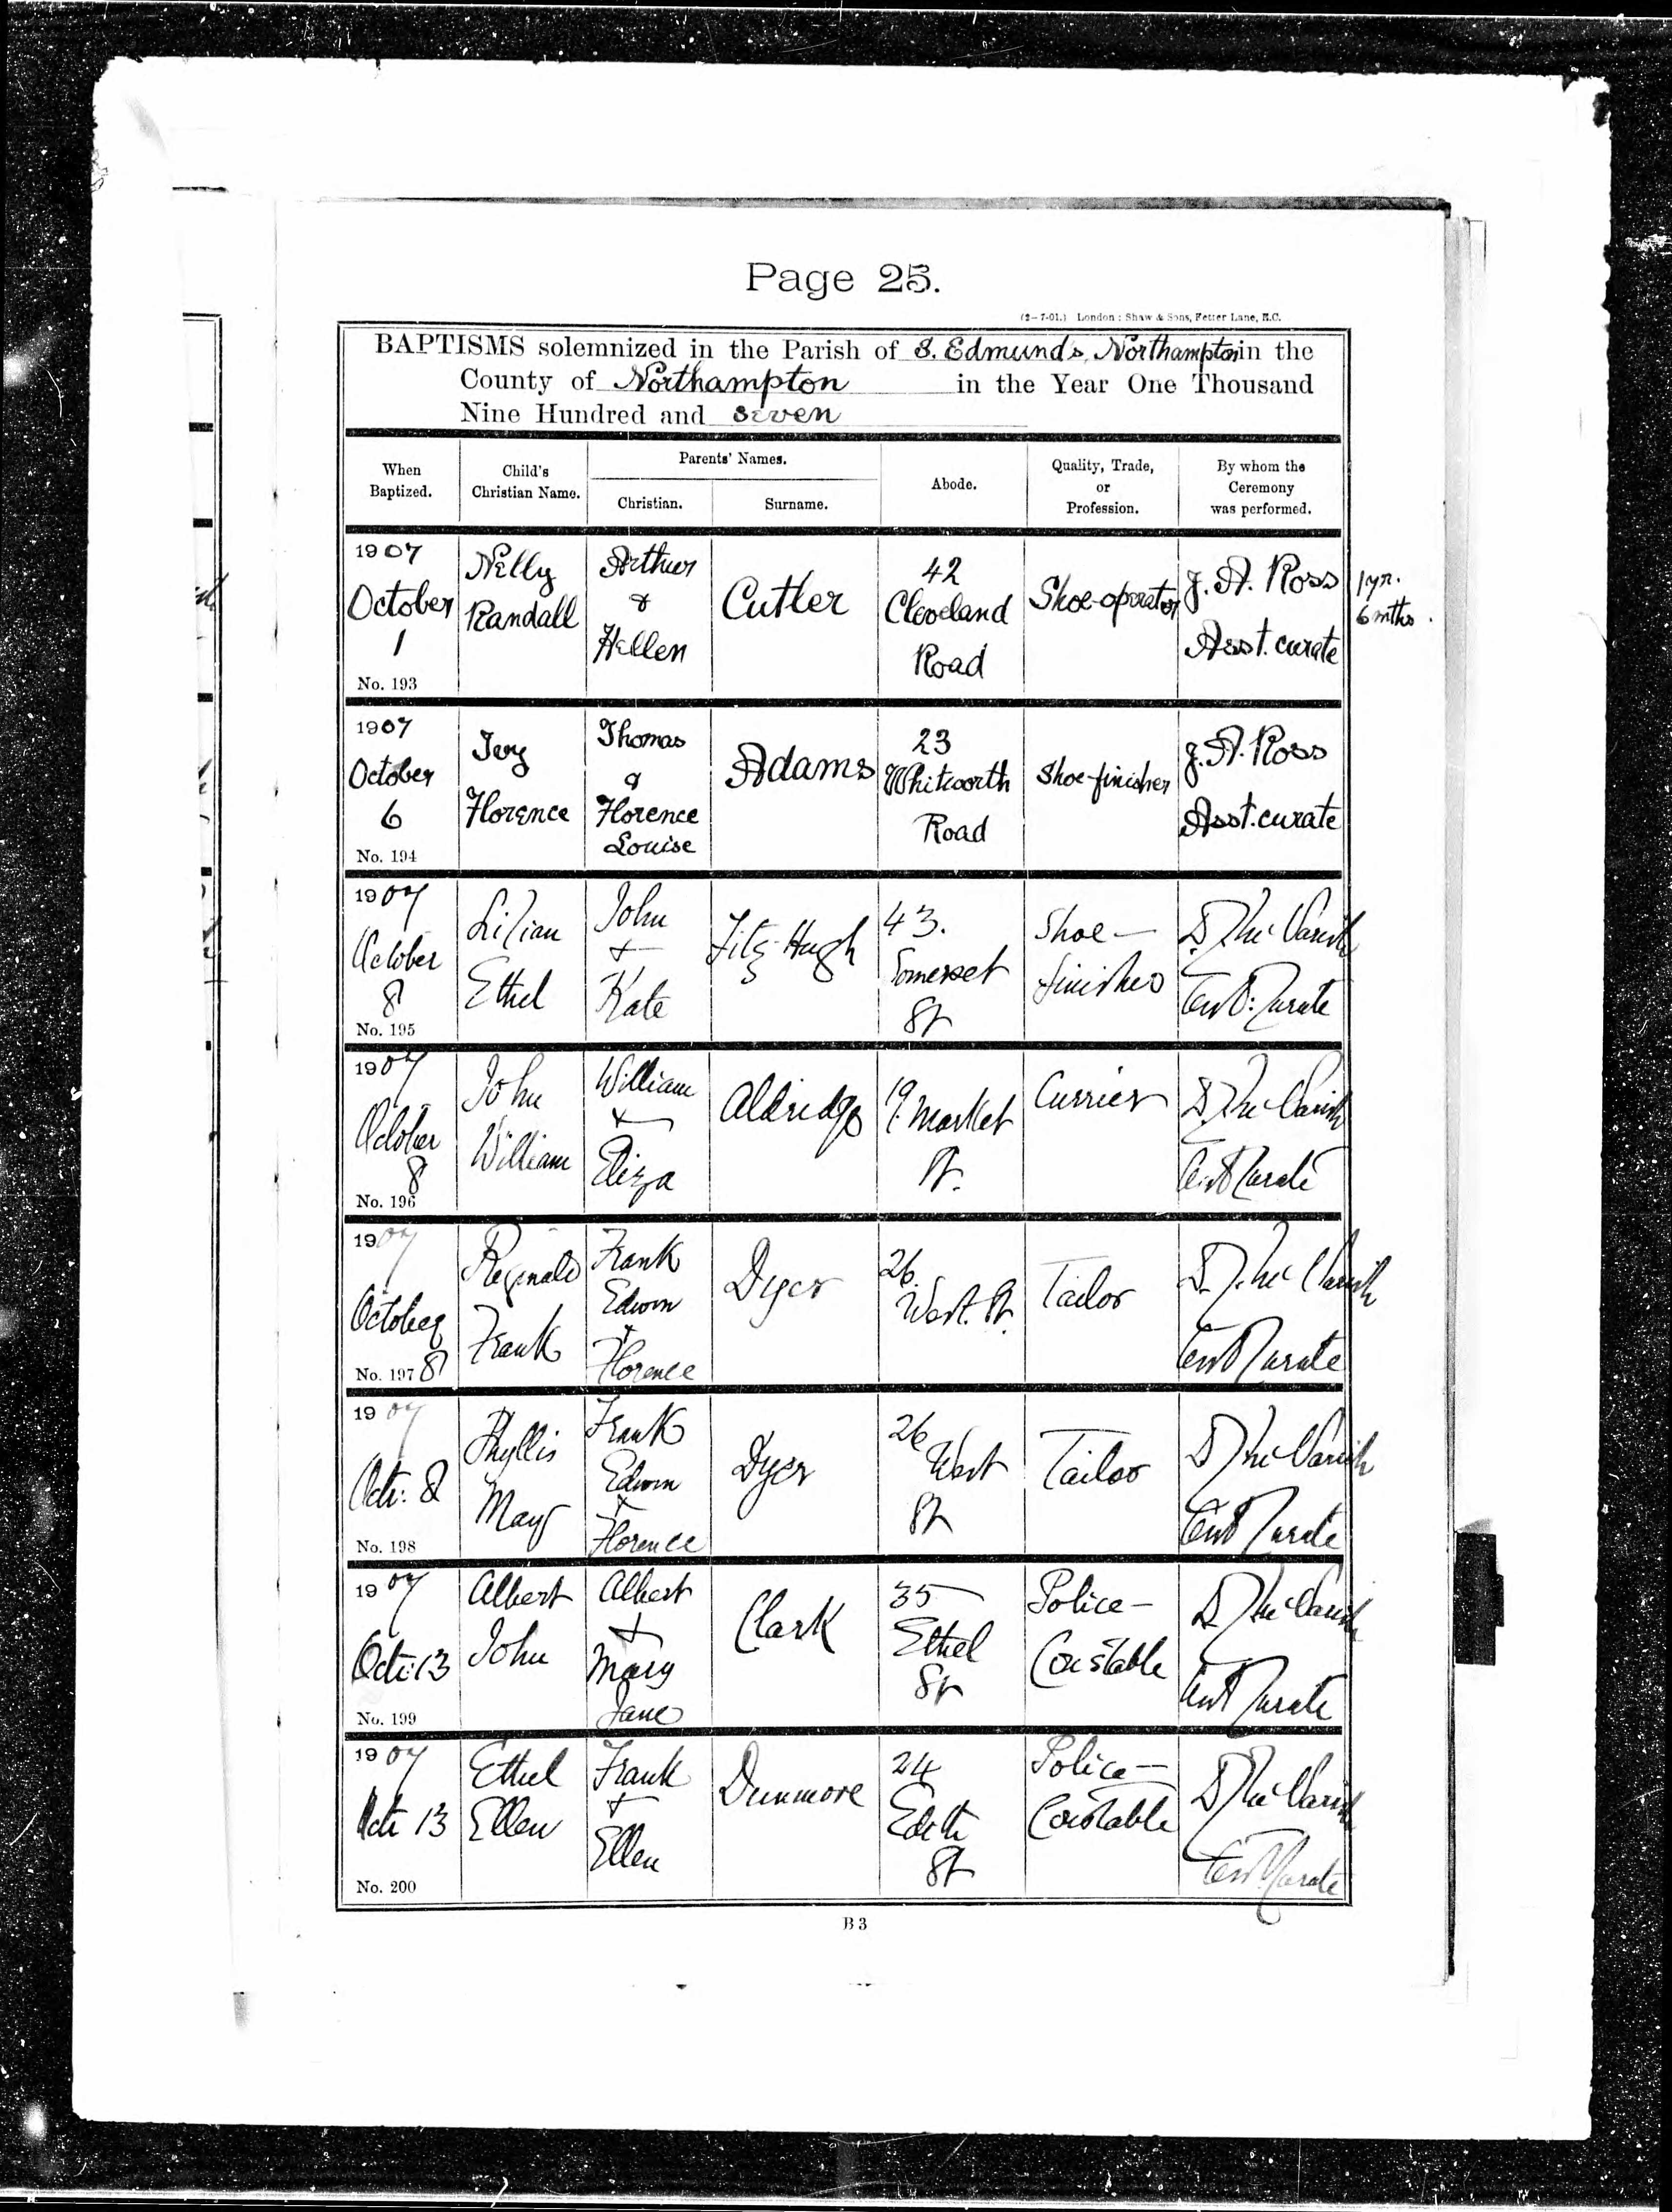 Page 25.
(2–7-01.) London: Shaw & Sons, Fetter Lane, E.C.
BAPTISMS solemnized in the Parish of S. Edmund's, Northampton in the
County of Northampton in the Year One Thousand
Nine Hundred and seven
When Baptized.
Child's Christian Name.
Parents' Names.
Christian.
Surname.
Abode.
Quality, Trade, or Profession.
By whom the Ceremony was performed.
1907
October
1
No. 193
Nelly
Randall
Arthur
&
Hellen
Cutler
42
Cleveland
Road
Shoe-operator
J. A. Ross
Asst. curate
1 yr.
6 mths.
1907
October
6
No. 194
Ivy
Florence
Thomas
&
Florence
Louise
Adams
23
Whitworth
Road
Shoe-finisher
J. A. Ross
Asst. curate
1907
October
8
No. 195
Lilian
Ethel
John
+
Kate
Fitz-Hugh
43.
Somerset
St
Shoe-
finisher
Curate
1907
October
8
No. 196
John
William
William
+
Eliza
Aldridge
19. Market
St.
Currier
Curate
1907
October
8
No. 197
Reginald
Frank
Frank
Edwin
+
Florence
Dyer
26.
West. St.
Tailor
Curate
1907
Octr: 8
No. 198
Phyllis
May
Frank
Edwin
+
Florence
Dyer
26
West
St
Tailor
Curate
1907
Octr: 13
No. 199
Albert
John
Albert
+
Mary
Jane
Clark
35
Ethel
St
Police-
Constable
Curate
1907
Octr 13
No. 200
Ethel
Ellen
Frank
+
Ellen
Dunmore
24
Edith
St
Police-
Constable
Curate
B 3